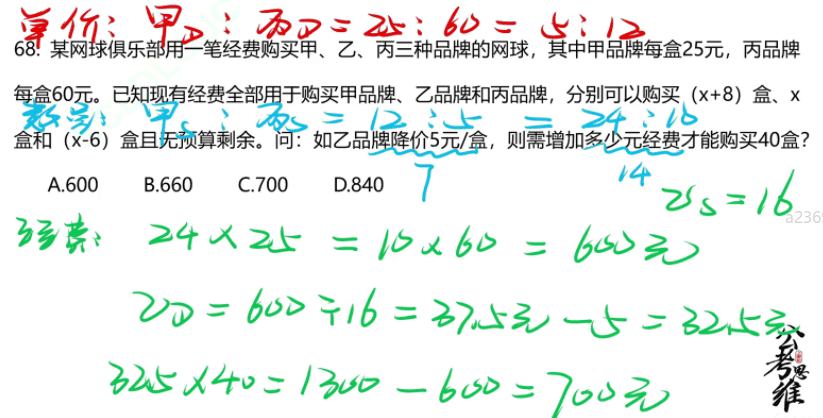 单价: 甲D : 丙D = 25 : 60 = 5 : 12
68. 某网球俱乐部用一笔经费购买甲、乙、丙三种品牌的网球，其中甲品牌每盒25元，丙品牌
每盒60元。已知现有经费全部用于购买甲品牌、乙品牌和丙品牌，分别可以购买（x+8）盒、x
数量: 甲S : 丙S = 12 : 5 = 24 : 10
盒和（x-6）盒且无预算剩余。问：如乙品牌降价5元/盒，则需增加多少元经费才能购买40盒?
7 14
A.600 B.660 C.700 D.840
乙S = 16
a2369
经费: 24 × 25 = 10 × 60 = 600元
乙D = 600 ÷ 16 = 37.5元 - 5 = 32.5元
32.5 × 40 = 1300 - 600 = 700元
公考思维